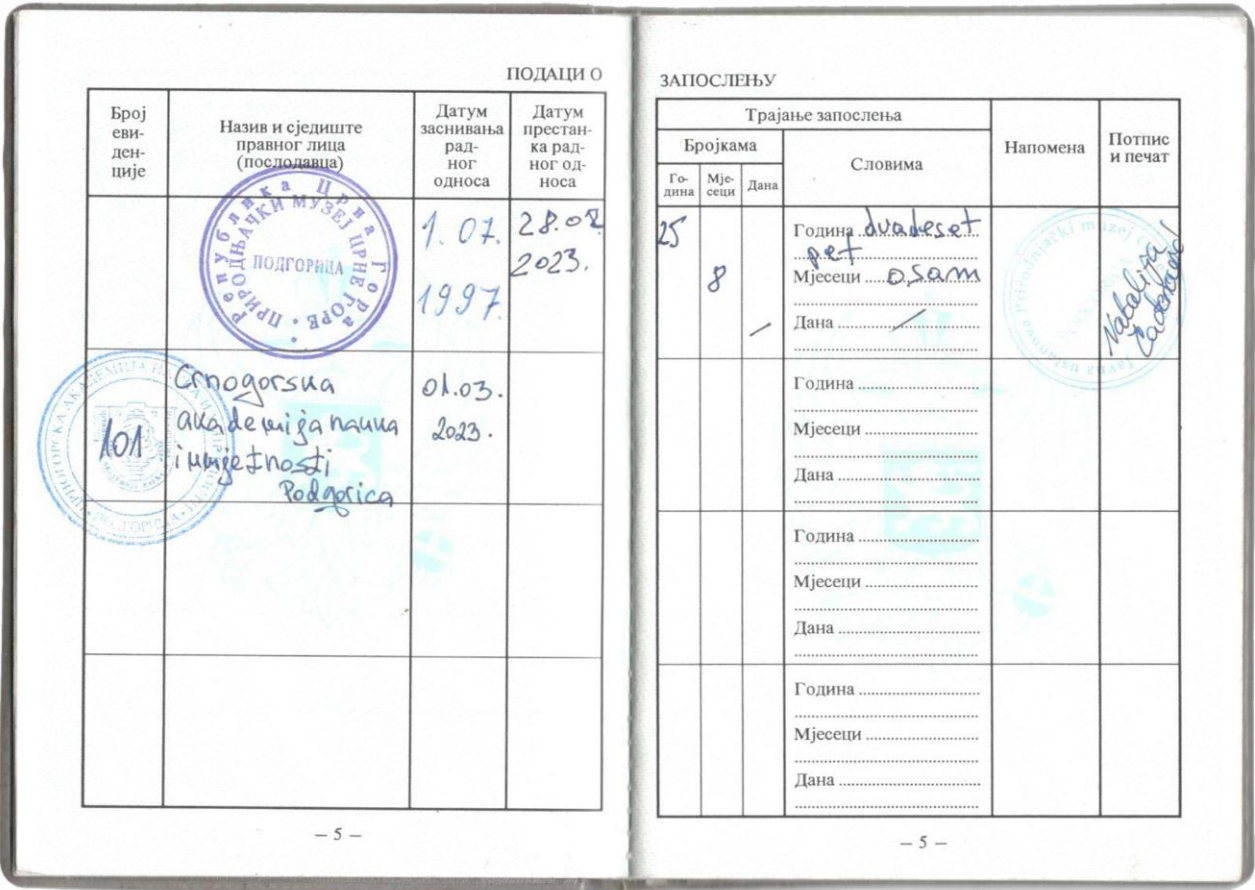 ПОДАЦИ О
Број
еви-
ден-
ције
Назив и сједиште
правног лица
(послодавца)
Датум
заснивања
рад-
ног
односа
Датум
престан-
ка рад-
ног од-
носа
Република Црна Гора
ПРИРОДЊАЧКИ МУЗЕЈ ЦРНЕ ГОРЕ
ПОДГОРИЦА
1. 07.
1997.
28.02
2023.
101
Crnogorska
akademija nauka
i umjetnosti
Podgorica
01.03.
2023.
– 5 –
ЗАПОСЛЕЊУ
Трајање запослења
Бројкама
Го-
дина
Мје-
сеци
Дана
Словима
Напомена
Потпис
и печат
25
8
/
Година dvadeset
pet
Мјесеци osam
Дана /
Natalija
Čađenović
Година
Мјесеци
Дана
Година
Мјесеци
Дана
Година
Мјесеци
Дана
– 5 –